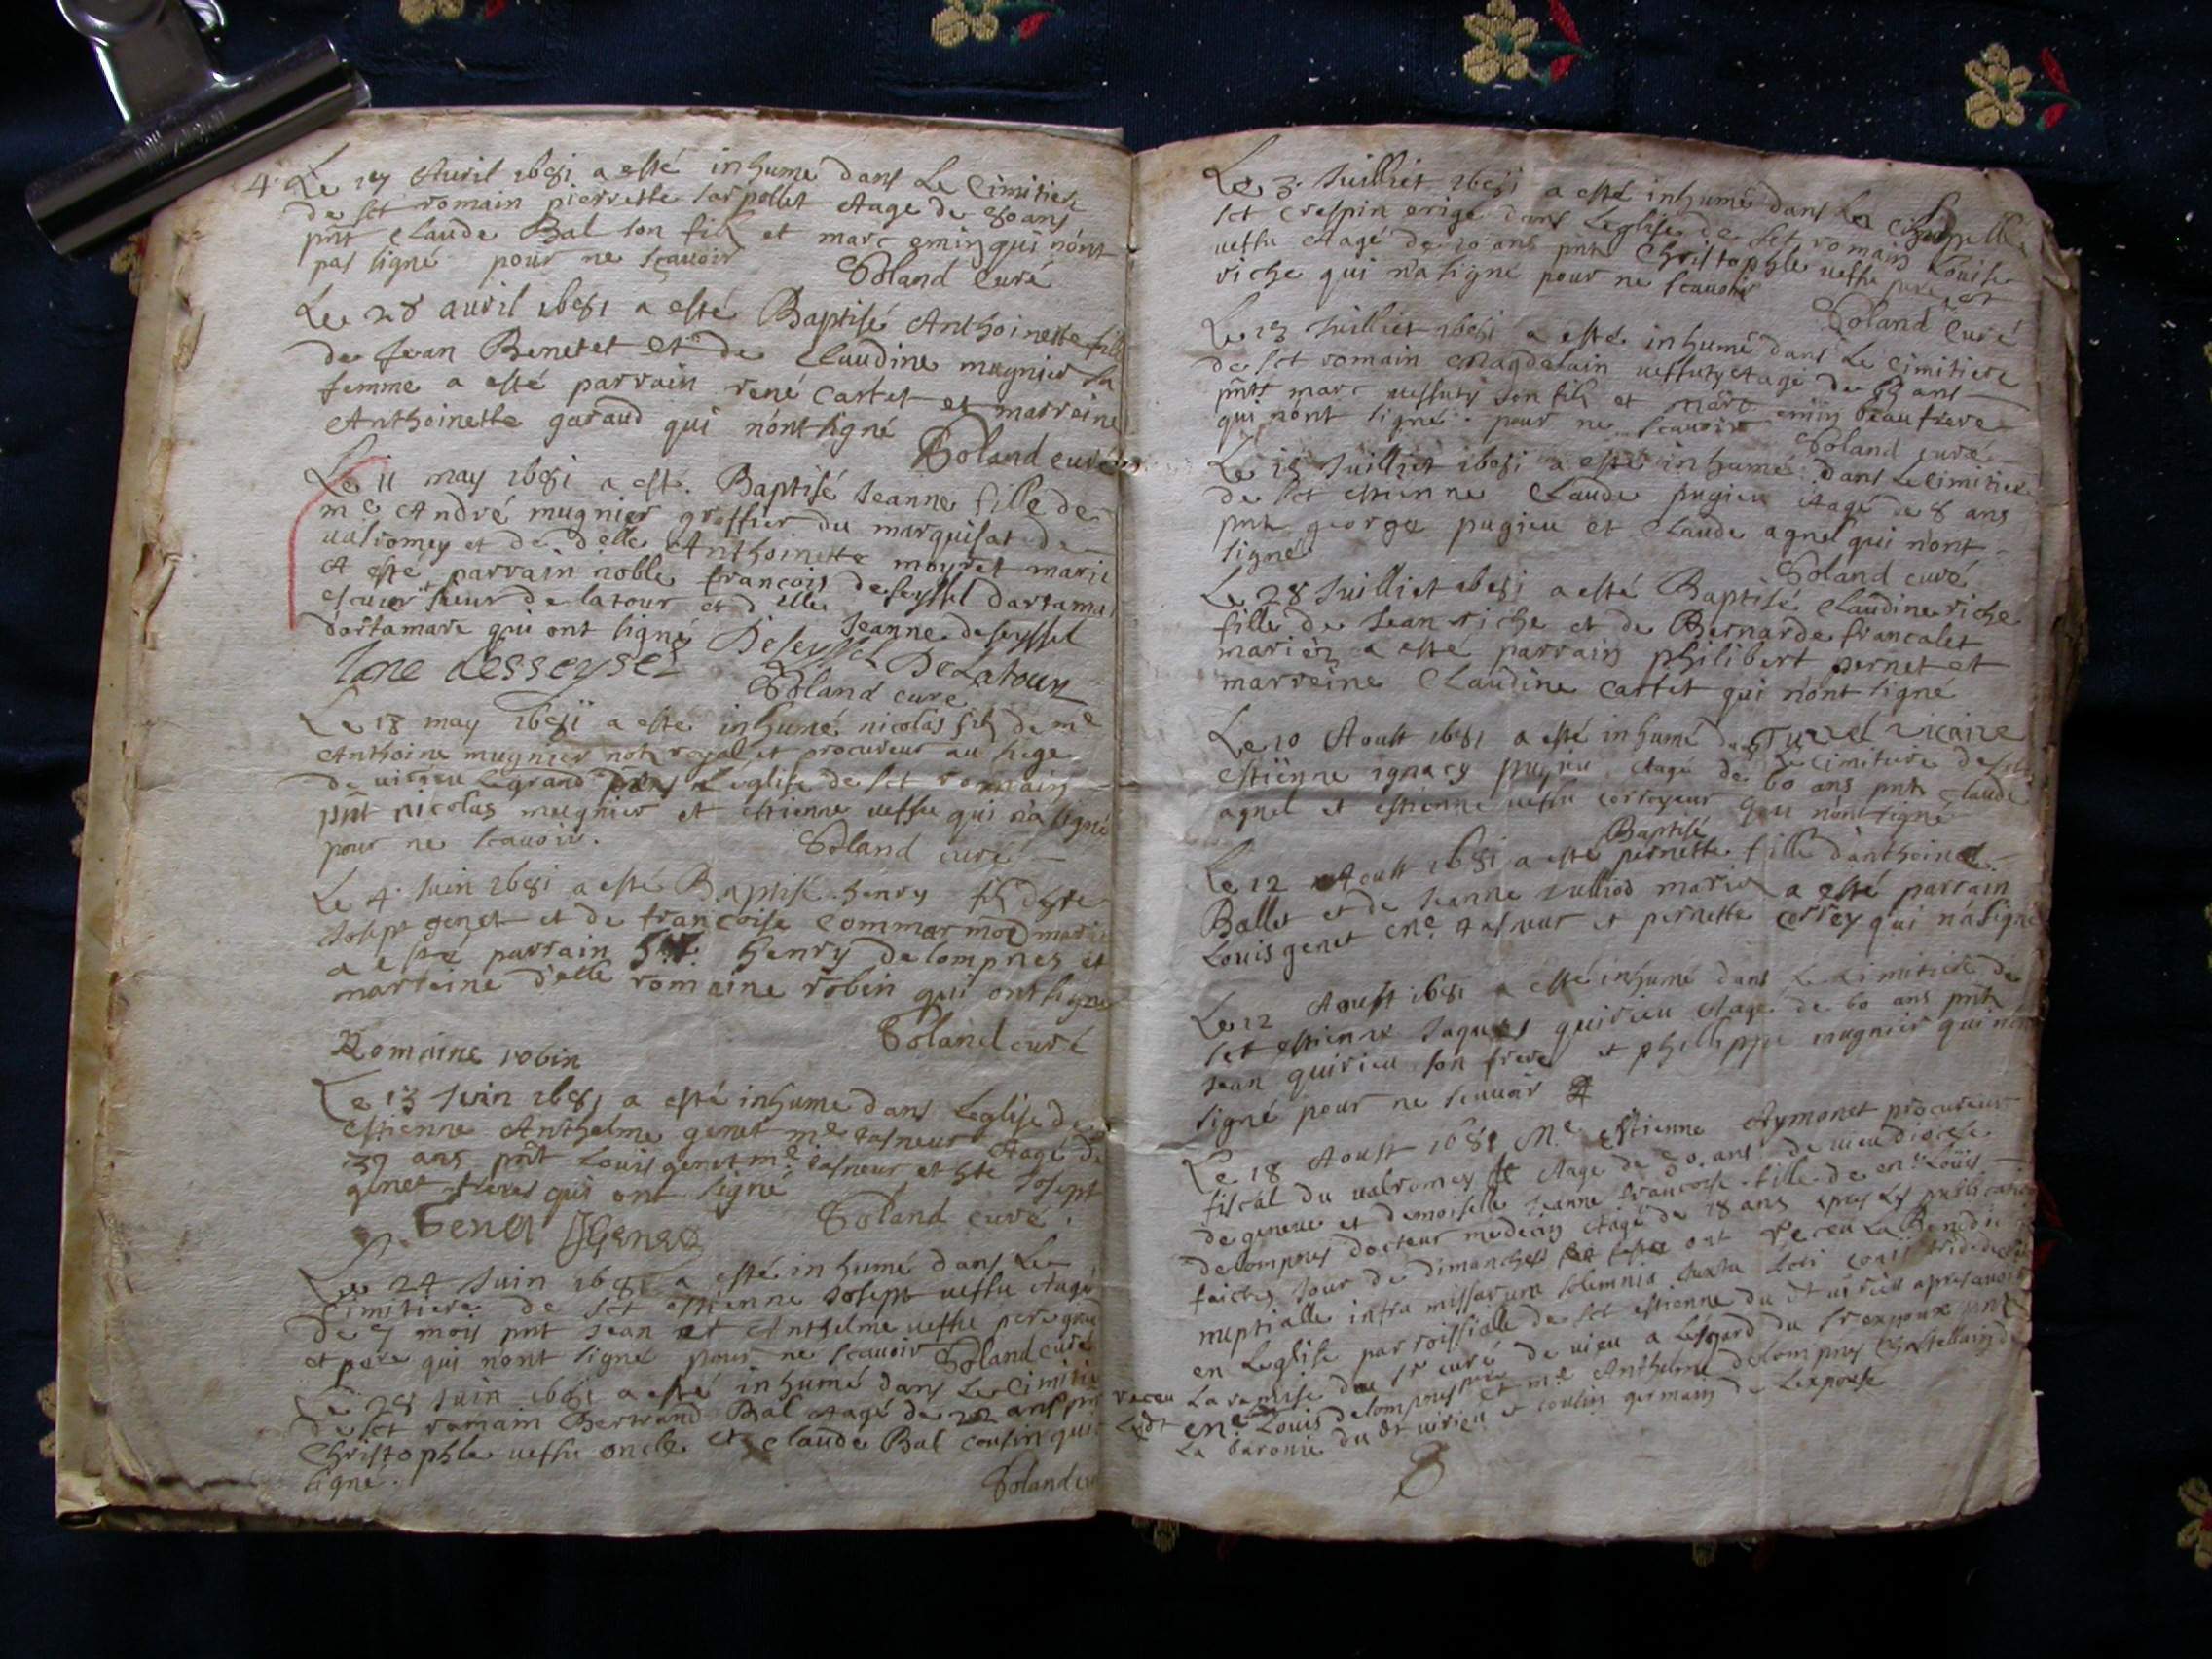 4. Le 17 Avril 1681 a esté inhumé dans Le Cimitiere
de sct romain pierrette sarpollet Aage de 80 ans
pnt Claude Bal son fils et marc emin qui n'ont
pas signé pour ne scavoir
Poland Curé
Le 28 avril 1681 a esté Baptisé Anthoinette fille
de Jean Benetet Et de Claudine mugnier sa
femme a esté parrain rené Cartet et marreine
Anthoinette garaud qui n'ont signé
Poland curé
Le 11 may 1681 a esté Baptisé Jeanne fille de
me André mugnier greffier du marquisat de
valromey et de delle Anthoinette moyret mariés
A esté parrain noble francois de seyssel dartama
escuier sieur de latour et delle Jeanne deseyssel
dartamare qui ont signé
Deseyssel DeLatour
Jane desseysel
Poland curé
Le 18 may 1681 a esté inhumé nicolas fils de me
Anthoine mugnier notre royal et procureur au siege
de virieu Legrand dans L'église de sct romain
pnt nicolas mugnier et etienne vessu qui n'a signé
pour ne scavoir.
Poland curé
Le 4. Juin 1681 a esté Baptisé henry fils de
Joseph genet et de francoise Commarmod mariés
a esté parrain henry delompnes et
marreine delle romaine robin qui ont signé
Poland curé
Romaine robin
Le 13 Juin 1681 a esté inhume dans Leglise de
estienne Anthelme genet me tasneur Aagé de
37 ans pnt Louis genet me tasneur et Joseph
genet freres qui ont signé
Poland curé.
Genet Genet
Le 24 Juin 1681 a esté inhumé dans Le
Cimitiere de sct estienne Joseph vessu Aagé
de 7 mois pnt Jean et Anthelme vessu pere grand
et pere qui n'ont signé pour ne scavoir Poland curé
Le 28 Juin 1681 a esté inhumé dans Le Cimitie
de sct romain Bertrand Bal Aagé de 22 ans pnt
Christophle vessu oncle et Claude Bal cousin qui
signé.
Poland curé
Le 3. Juilliet 1681 a esté inhumé dans La Chappelle
sct Crespin erigé dans L'eglise de sct romain Louise
vessu Aagé de 20 ans pnt Christophle vessu pere et
riche qui n'a signé pour ne scavoir
Poland Curé
Le 13 Juilliet 1681 a esté inhumé dans Le Cimitiere
de sct romain Magdelain vessuty Aagé de ans
pnts marc vessuty son fils et marc emin beau frere
qui n'ont signé pour ne scavoir
Poland curé
Le 15 Juilliet 1681 a esté inhumé dans Le Cimitiere
de sct etienne Claude pugieu Aagé de 8 ans
pnt george pugieu et Claude agnel qui n'ont
signé
Poland curé
Le 28 Juilliet 1681 a esté Baptisé Claudine riche
fille de Jean riche et de Bernarde francalet
mariés a esté parrain philibert pernet et
marreine Claudine Cartet qui n'ont signé
Le 10 Aoust 1681 a esté inhumé dans Le Cimitiere de sct
Estienne ignacy pugieu Aagé de 60 ans pnt Claude
agnel et estienne vessu corroyeur qui n'ont signé
Turrel vicaire
Le 12 Aoust 1681 a esté Baptisé pernette fille d'anthoine
Ballet et de Jeanne Julliod mariés a esté parrain
Louis genet tasneur et pernette correy qui n'a signé
Le 12 Aoust 1681 a esté inhumé dans Le Cimitiere de
sct estienne Jaques quirieu Aagé de 60 ans pnt
Jean quirieu son frere et phillippe mugnier qui n'ont
signé pour ne scavoir
Le 18 Aoust 1681 Me Estienne Aymonet procureur
fiscal du valromey Aagé de 30 ans de vieu diocese
de geneve et demoiselle Jeanne francoise fille de Louis
delompnes docteur medecin Aagé de 18 ans apres Les publications
faictes Jour de dimanches ont receu La Benedi
nuptialle infra missarum solemnia Juxta
en Leglise parroissialle de sct estienne du dt virieu apres avoir
receu La remise du sr curé de vieu a Lesgard du sr expoux pnt
Ledt Louis delompnes pere et me Anthelme delompnes Chastellain de
La baronie du dt virieu et cousin germain de Lexpouse